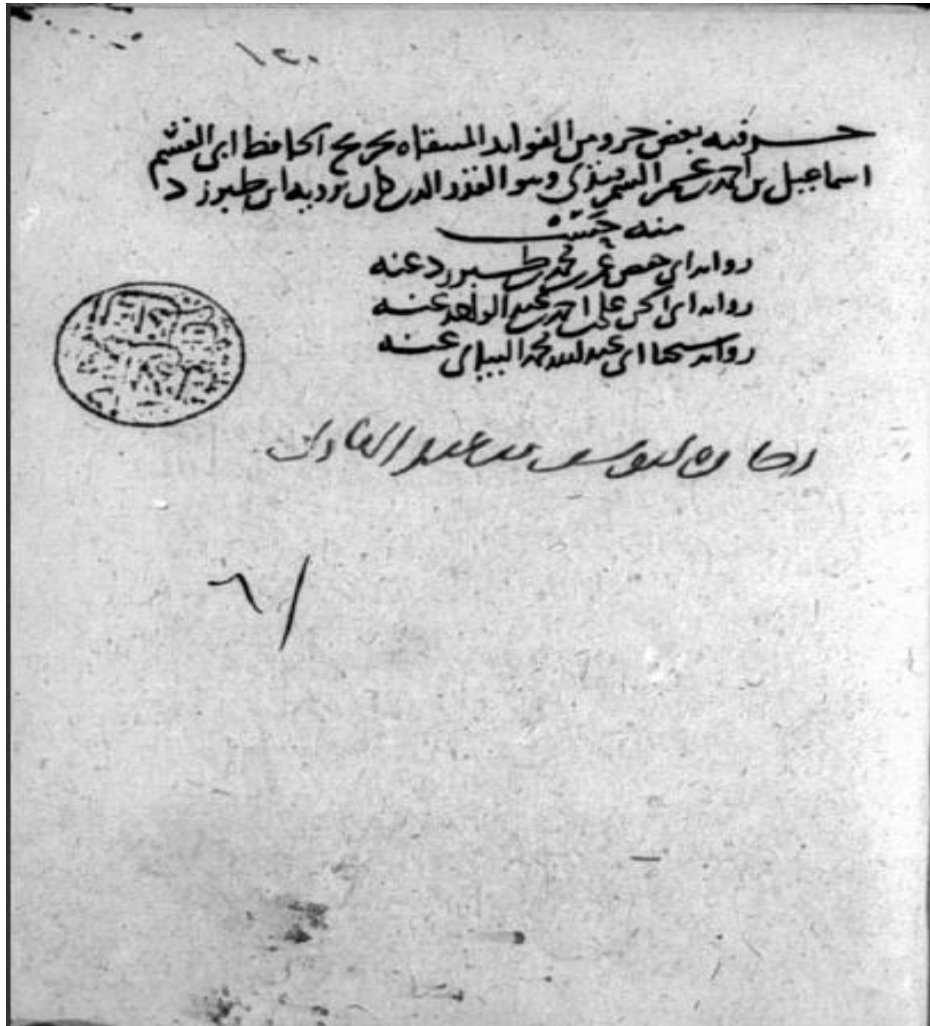 ١٢٠
جزء فيه بعض جزو من الفوايد المنتقاه تخريج الحافظ ابى القسم
اسماعيل بن احمد بن عمر السمرقندى وهو القدر الذى كان يرويه ابن طبرزد
منه حسب
روايه ابى حفص عمر بن محمد بن طبرزد عنه
روايه ابى الحسن على بن احمد بن عبد الواحد عنه
روايه شيخنا ابى عبد الله محمد البيانى عنه
يوسف بن عبد الهادى
٦١